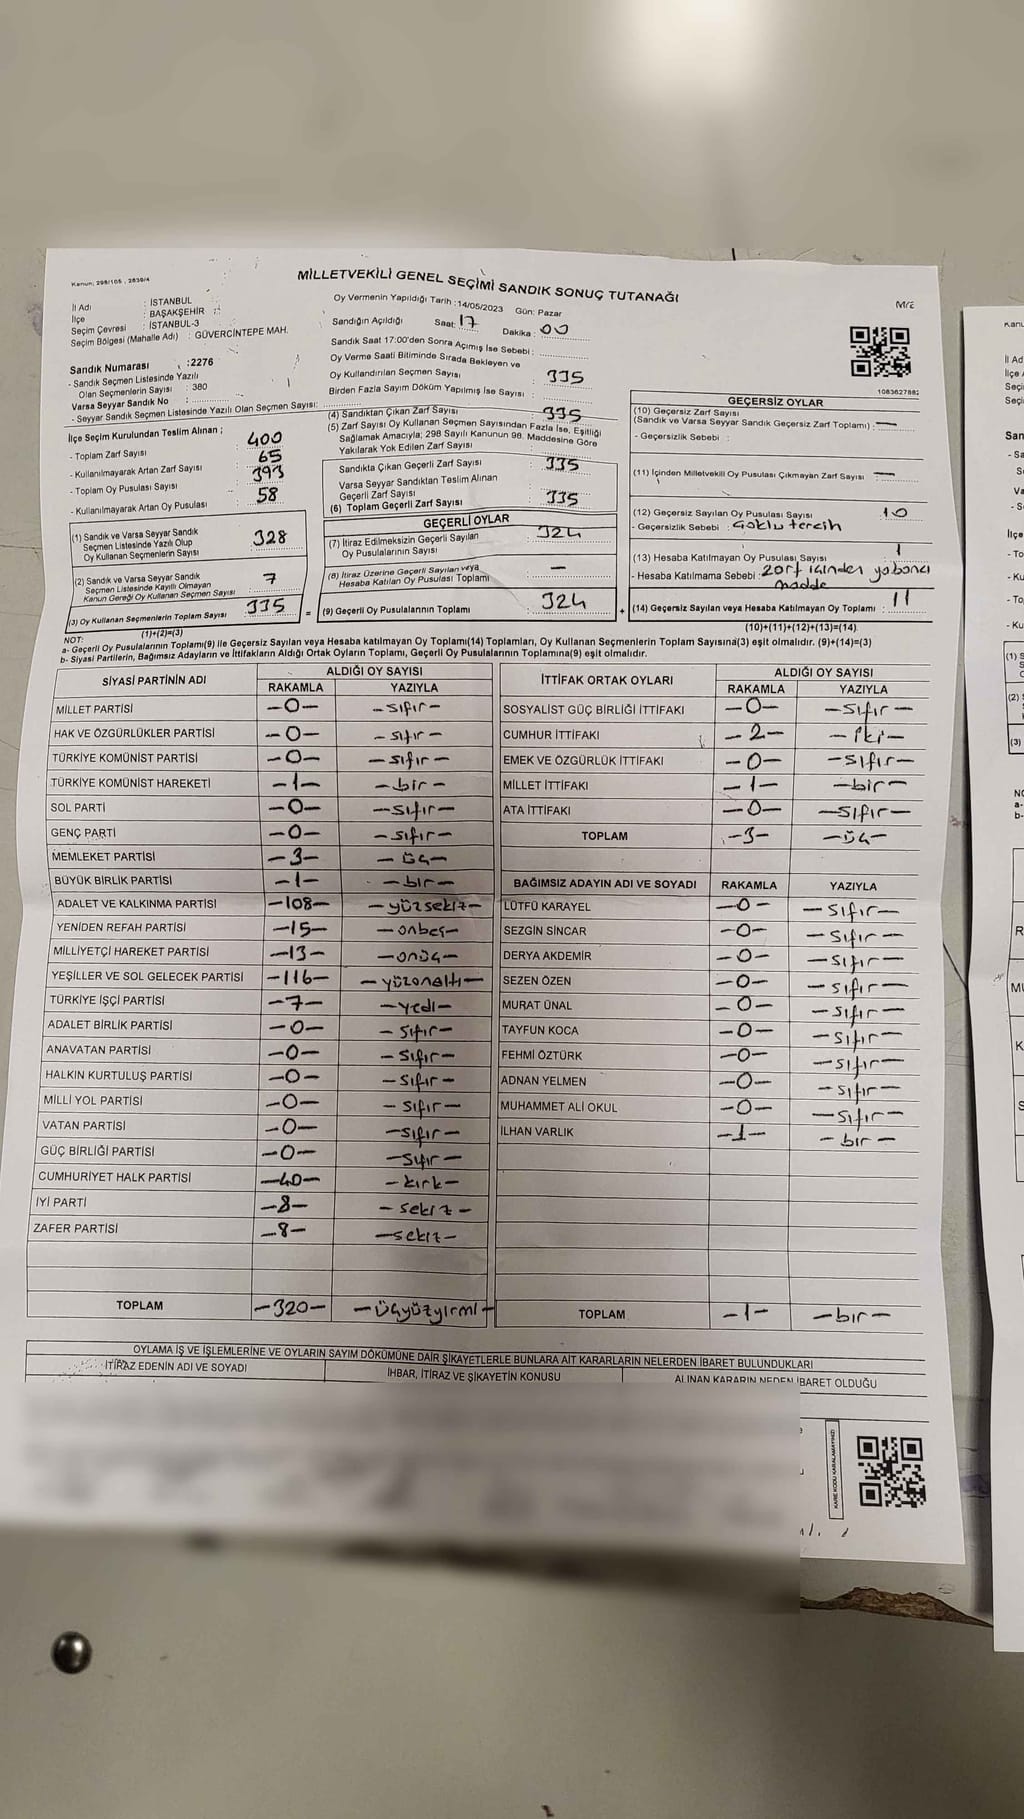 Kanun: 298/105 , 2839/4
MİLLETVEKİLİ GENEL SEÇİMİ SANDIK SONUÇ TUTANAĞI
İl Adı : İSTANBUL
İlçe : BAŞAKŞEHİR
Seçim Çevresi : İSTANBUL-3
Seçim Bölgesi (Mahalle Adı) : GÜVERCİNTEPE MAH.
Sandık Numarası :2276
- Sandık Seçmen Listesinde Yazılı
Olan Seçmenlerin Sayısı : 380
Varsa Seyyar Sandık No :
- Seyyar Sandık Seçmen Listesinde Yazılı Olan Seçmen Sayısı:
Oy Vermenin Yapıldığı Tarih :14/05/2023 Gün: Pazar
Sandığın Açıldığı Saat: 17 Dakika : 00
Sandık Saat 17:00'den Sonra Açımış İse Sebebi :
Oy Verme Saati Bitiminde Sırada Bekleyen ve
Oy Kullandırılan Seçmen Sayısı 335
Birden Fazla Sayım Döküm Yapılmış İse Sayısı :
1083627882
İlçe Seçim Kurulundan Teslim Alınan ;
- Toplam Zarf Sayısı 400
- Kullanılmayarak Artan Zarf Sayısı 65
- Toplam Oy Pusulası Sayısı 393
- Kullanılmayarak Artan Oy Pusulası 58
(1) Sandık ve Varsa Seyyar Sandık
Seçmen Listesinde Yazılı Olup
Oy Kullanan Seçmenlerin Sayısı 328
(2) Sandık ve Varsa Seyyar Sandık
Seçmen Listesinde Kayıtlı Olmayan
Kanun Gereği Oy Kullanan Seçmen Sayısı 7
(3) Oy Kullanan Seçmenlerin Toplam Sayısı 335 =
(1)+(2)=(3)
(4) Sandıktan Çıkan Zarf Sayısı 335
(5) Zarf Sayısı Oy Kullanan Seçmen Sayısından Fazla İse, Eşitliği
Sağlamak Amacıyla; 298 Sayılı Kanunun 98. Maddesine Göre
Yakılarak Yok Edilen Zarf Sayısı
Sandıkta Çıkan Geçerli Zarf Sayısı 335
Varsa Seyyar Sandıktan Teslim Alınan
Geçerli Zarf Sayısı
(6) Toplam Geçerli Zarf Sayısı 335
GEÇERLİ OYLAR
(7) İtiraz Edilmeksizin Geçerli Sayılan
Oy Pusulalarının Sayısı 324
(8) İtiraz Üzerine Geçerli Sayılan veya
Hesaba Katılan Oy Pusulası Toplamı —
(9) Geçerli Oy Pusulalarının Toplamı 324 +
GEÇERSİZ OYLAR
(10) Geçersiz Zarf Sayısı
(Sandık ve Varsa Seyyar Sandık Geçersiz Zarf Toplamı) : —
- Geçersizlik Sebebi :
(11) İçinden Milletvekili Oy Pusulası Çıkmayan Zarf Sayısı —
(12) Geçersiz Sayılan Oy Pusulası Sayısı 10
- Geçersizlik Sebebi : Çoklu tercih
(13) Hesaba Katılmayan Oy Pusulası Sayısı 1
- Hesaba Katılmama Sebebi : zarf içinden yabancı
madde
(14) Geçersiz Sayılan veya Hesaba Katılmayan Oy Toplamı : 11
(10)+(11)+(12)+(13)=(14)
NOT:
a- Geçerli Oy Pusulalarının Toplamı(9) ile Geçersiz Sayılan veya Hesaba katılmayan Oy Toplamı(14) Toplamları, Oy Kullanan Seçmenlerin Toplam Sayısına(3) eşit olmalıdır. (9)+(14)=(3)
b- Siyasi Partilerin, Bağımsız Adayların ve İttifakların Aldığı Ortak Oyların Toplamı, Geçerli Oy Pusulalarının Toplamına(9) eşit olmalıdır.
SİYASİ PARTİNİN ADI ALDIĞI OY SAYISI
RAKAMLA YAZIYLA
MİLLET PARTİSİ —0— —sıfır—
HAK VE ÖZGÜRLÜKLER PARTİSİ —0— —sıfır—
TÜRKİYE KOMÜNİST PARTİSİ —0— —sıfır—
TÜRKİYE KOMÜNİST HAREKETİ —1— —bir—
SOL PARTİ —0— —sıfır—
GENÇ PARTİ —0— —sıfır—
MEMLEKET PARTİSİ —3— —üç—
BÜYÜK BİRLİK PARTİSİ —1— —bir—
ADALET VE KALKINMA PARTİSİ —108— —yüzsekiz—
YENİDEN REFAH PARTİSİ —15— —onbeş—
MİLLİYETÇİ HAREKET PARTİSİ —13— —onüç—
YEŞİLLER VE SOL GELECEK PARTİSİ —116— —yüzonaltı—
TÜRKİYE İŞÇİ PARTİSİ —7— —yedi—
ADALET BİRLİK PARTİSİ —0— —sıfır—
ANAVATAN PARTİSİ —0— —sıfır—
HALKIN KURTULUŞ PARTİSİ —0— —sıfır—
MİLLİ YOL PARTİSİ —0— —sıfır—
VATAN PARTİSİ —0— —sıfır—
GÜÇ BİRLİĞİ PARTİSİ —0— —sıfır—
CUMHURİYET HALK PARTİSİ —40— —kırk—
İYİ PARTİ —8— —sekiz—
ZAFER PARTİSİ —8— —sekiz—
TOPLAM —320— —üçyüzyirmi—
İTTİFAK ORTAK OYLARI ALDIĞI OY SAYISI
RAKAMLA YAZIYLA
SOSYALİST GÜÇ BİRLİĞİ İTTİFAKI —0— —sıfır—
CUMHUR İTTİFAKI —2— —iki—
EMEK VE ÖZGÜRLÜK İTTİFAKI —0— —sıfır—
MİLLET İTTİFAKI —1— —bir—
ATA İTTİFAKI —0— —sıfır—
TOPLAM —3— —üç—
BAĞIMSIZ ADAYIN ADI VE SOYADI RAKAMLA YAZIYLA
LÜTFÜ KARAYEL —0— —sıfır—
SEZGİN SİNCAR —0— —sıfır—
DERYA AKDEMİR —0— —sıfır—
SEZEN ÖZEN —0— —sıfır—
MURAT ÜNAL —0— —sıfır—
TAYFUN KOCA —0— —sıfır—
FEHMİ ÖZTÜRK —0— —sıfır—
ADNAN YELMEN —0— —sıfır—
MUHAMMET ALİ OKUL —0— —sıfır—
İLHAN VARLIK —1— —bir—
TOPLAM —1— —bir—
OYLAMA İŞ VE İŞLEMLERİNE VE OYLARIN SAYIM DÖKÜMÜNE DAİR ŞİKAYETLERLE BUNLARA AİT KARARLARIN NELERDEN İBARET BULUNDUKLARI
İTİRAZ EDENİN ADI VE SOYADI İHBAR, İTİRAZ VE ŞİKAYETİN KONUSU ALINAN KARARIN NEDEN İBARET OLDUĞU
KARE KODU KARALAMAYINIZ!